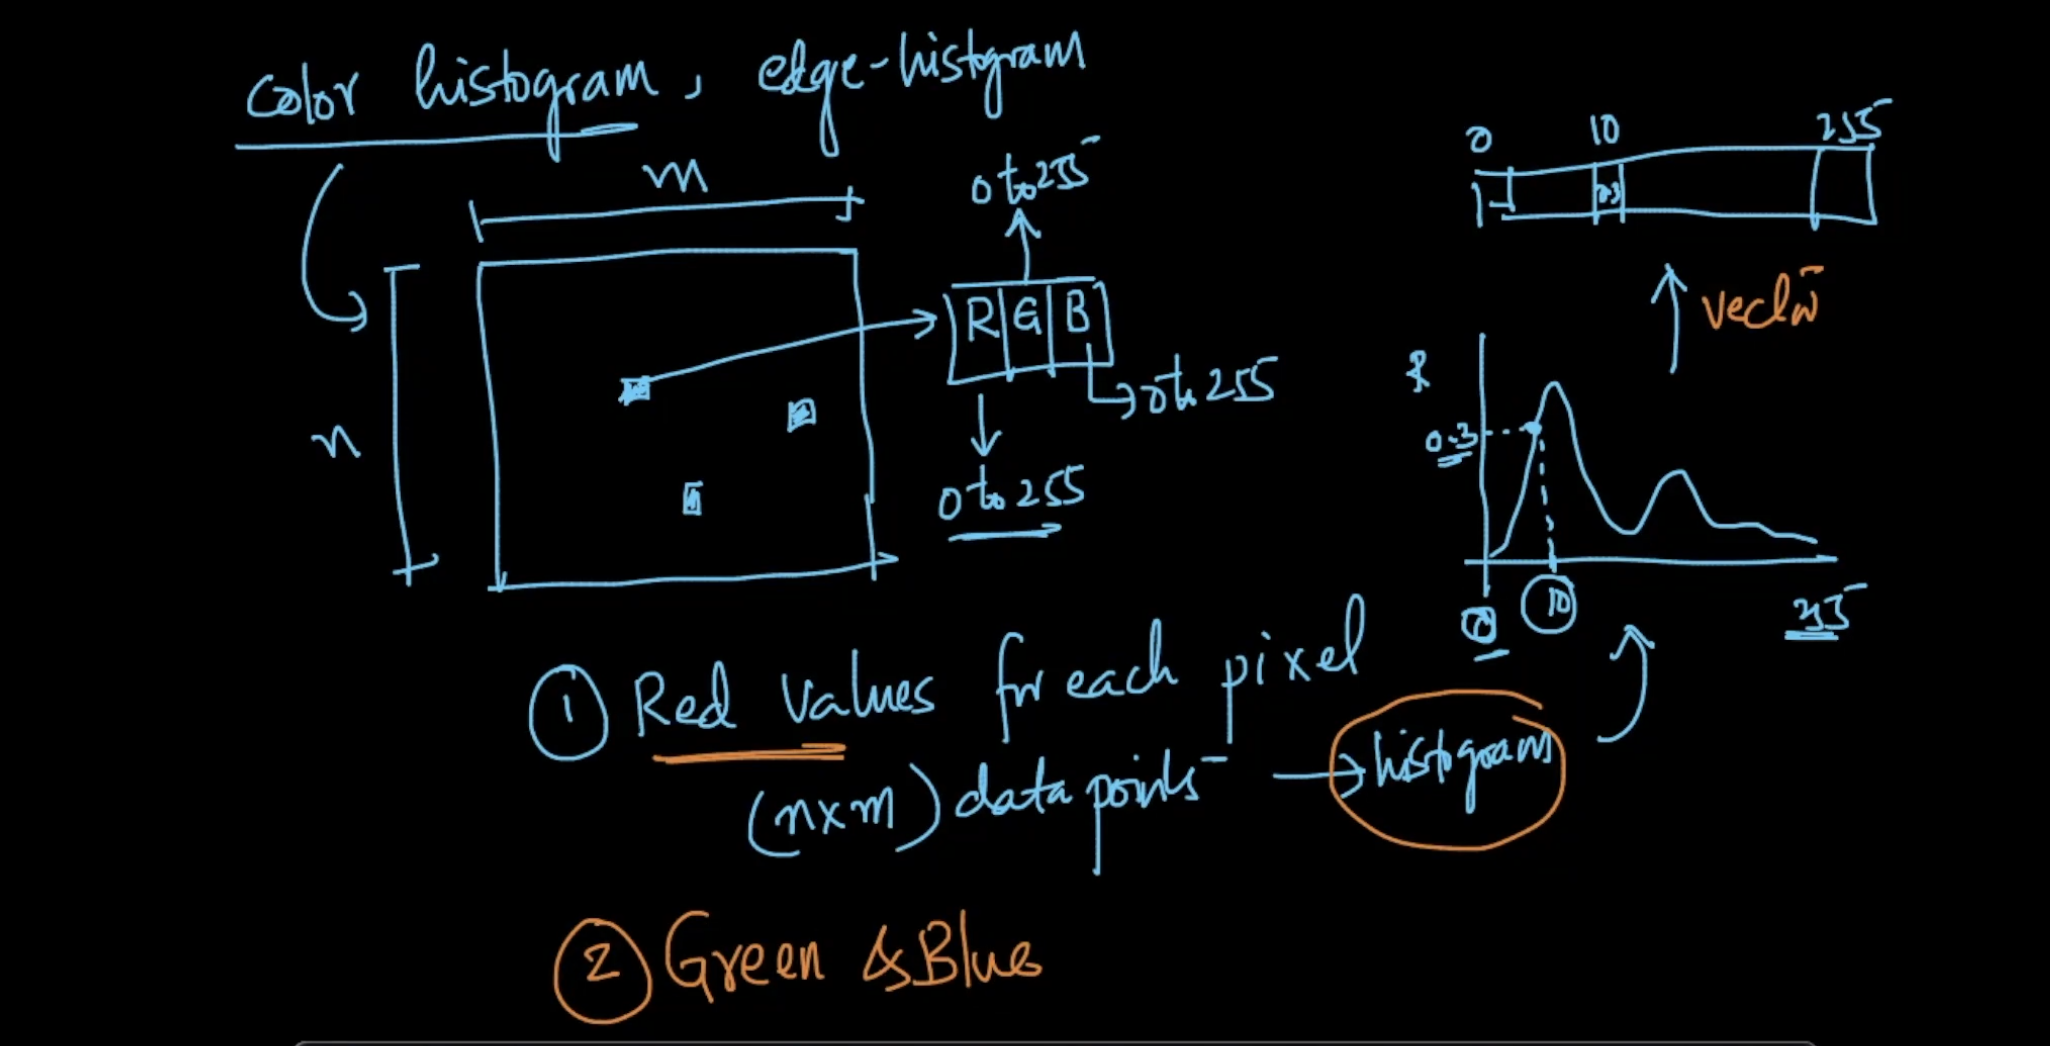 color histogram, edge-histgram
m
0 to 255
0 10 255
0.3
R G B
vector
n
0 to 255
0.3
0 to 255
0 10 255
① Red Values for each pixel
(n×m) data points → histogram
② Green & Blue